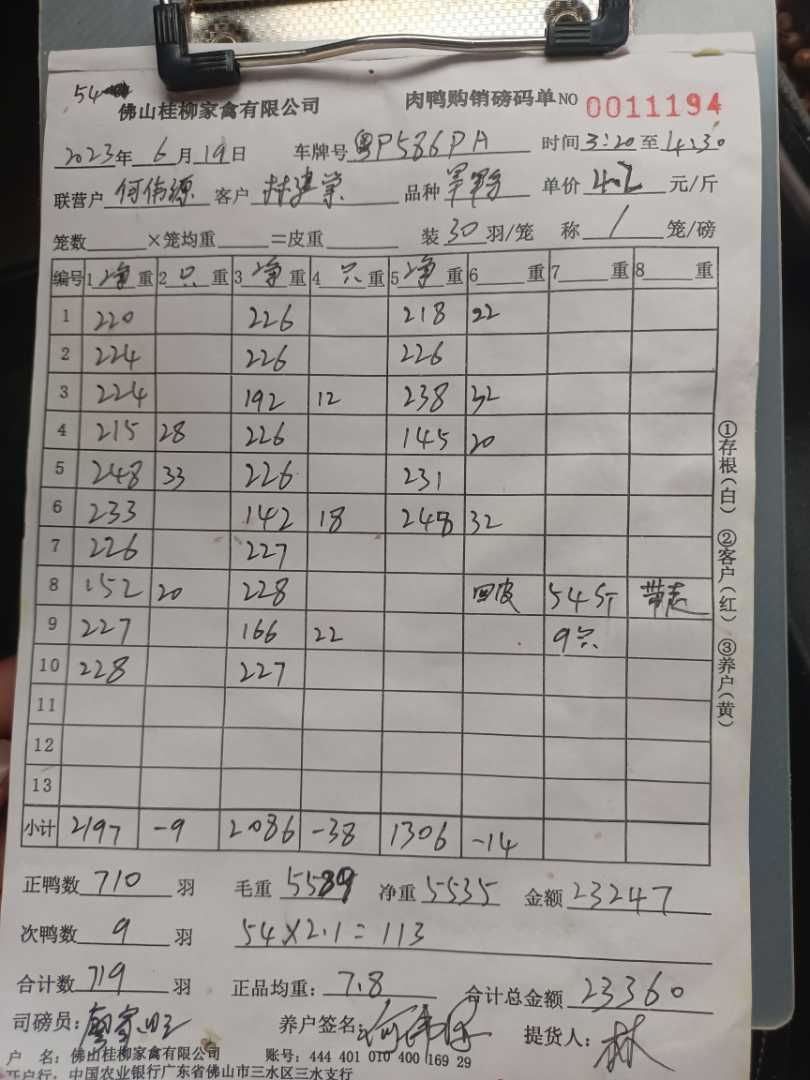 54
佛山桂柳家禽有限公司 肉鸭购销磅码单 NO 0011194
2023年 6月19日 车牌号 粤P586PA 时间 3:20 至 4:30
联营户 何伟源 客户 林 品种 单价 4.2 元/斤
笼数 ×笼均重 =皮重 装 30 羽/笼 称 1 笼/磅
编号 1 净 重 2 只 重 3 净 重 4 只 重 5 净 重 6 重 7 重 8 重
1 220 226 218 22
2 224 226 226
3 224 192 12 238 32
4 215 28 226 145 20
5 248 33 226 231
6 233 142 18 248 32
7 226 227
8 152 20 228 回皮 54斤
9 227 166 22 9只
10 228 227
11
12
13
小计 2197 -9 2086 -38 1306 -14
正鸭数 710 羽 毛重 5589 净重 5535 金额 23247
次鸭数 9 羽 54×2.1=113
合计数 719 羽 正品均重: 7.8 合计总金额 23360
司磅员: 养户签名: 提货人: 林
户 名: 佛山桂柳家禽有限公司 账号: 444 401 010 400 169 29
开户行: 中国农业银行广东省佛山市三水区三水支行
①存根(白) ②客户(红) ③养户(黄)